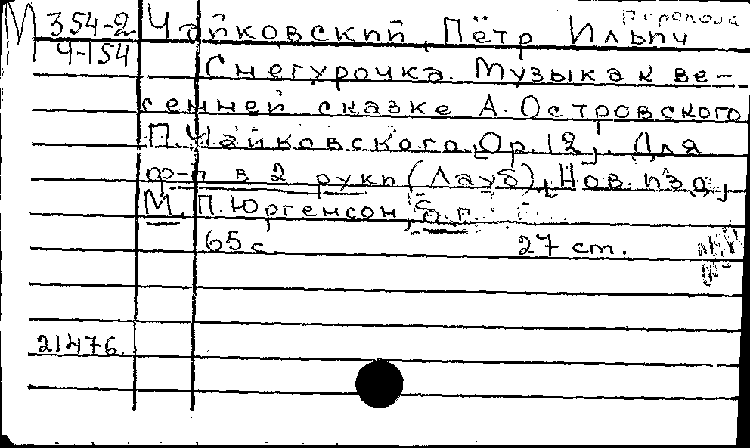 М 354-2 Чайковский, Пётр Ильич
Ч-154
Снегурочка. Музыка к ве-
сенней сказке А. Островского
П. Чайковского, Ор. 12, . Для
ф-п в 2 руки (Лауб), Нов. изд,
М, П. Юргенсон, б.г.
65 с. 27 ст.
21476